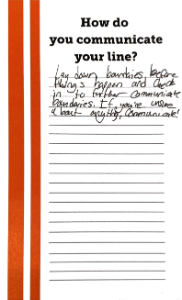 How do
you communicate
your line?
Lay down boundries before
things happen and check
in to further communicate
boundaries. If you're unsure
about anything, communicate!